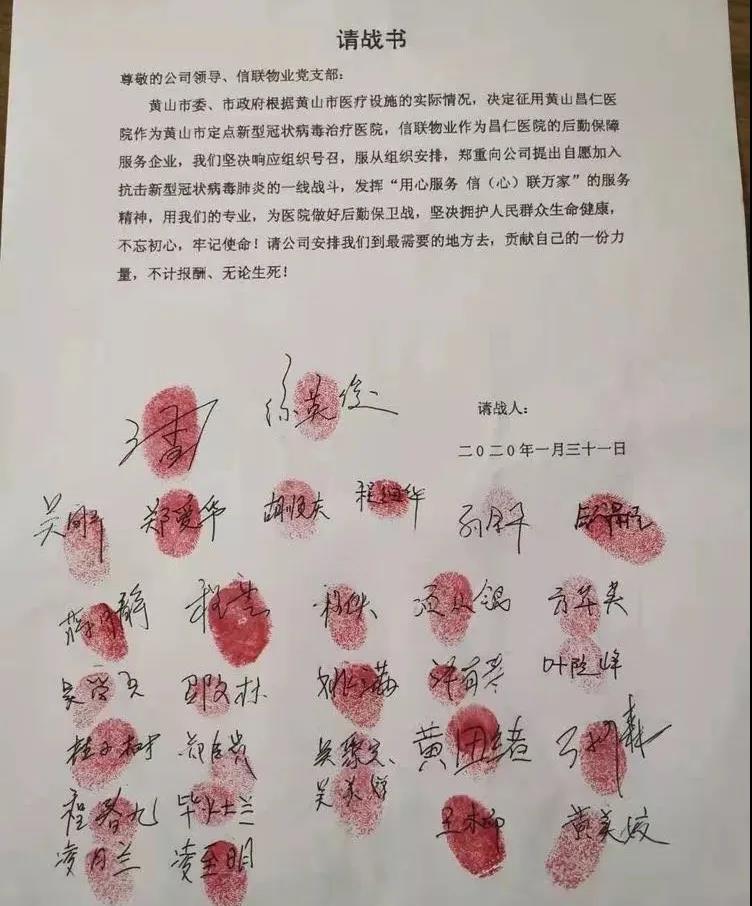 请战书
尊敬的公司领导、信联物业党支部：
黄山市委、市政府根据黄山市医疗设施的实际情况，决定征用黄山昌仁医
院作为黄山市定点新型冠状病毒治疗医院，信联物业作为昌仁医院的后勤保障
服务企业，我们坚决响应组织号召，服从组织安排，郑重向公司提出自愿加入
抗击新型冠状病毒肺炎的一线战斗，发挥“用心服务 信（心）联万家”的服务
精神，用我们的专业，为医院做好后勤保卫战，坚决拥护人民群众生命健康，
不忘初心，牢记使命！请公司安排我们到最需要的地方去，贡献自己的一份力
量，不计报酬、无论生死！
徐英俊
请战人：
二〇二〇年一月三十一日
郑爱华 胡顺友
方华美
叶隐峰
桂子树 黄团结
程春九 毕灶兰 黄美姣
凌月兰 凌至明